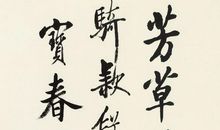 芳草
騎款段
寶春